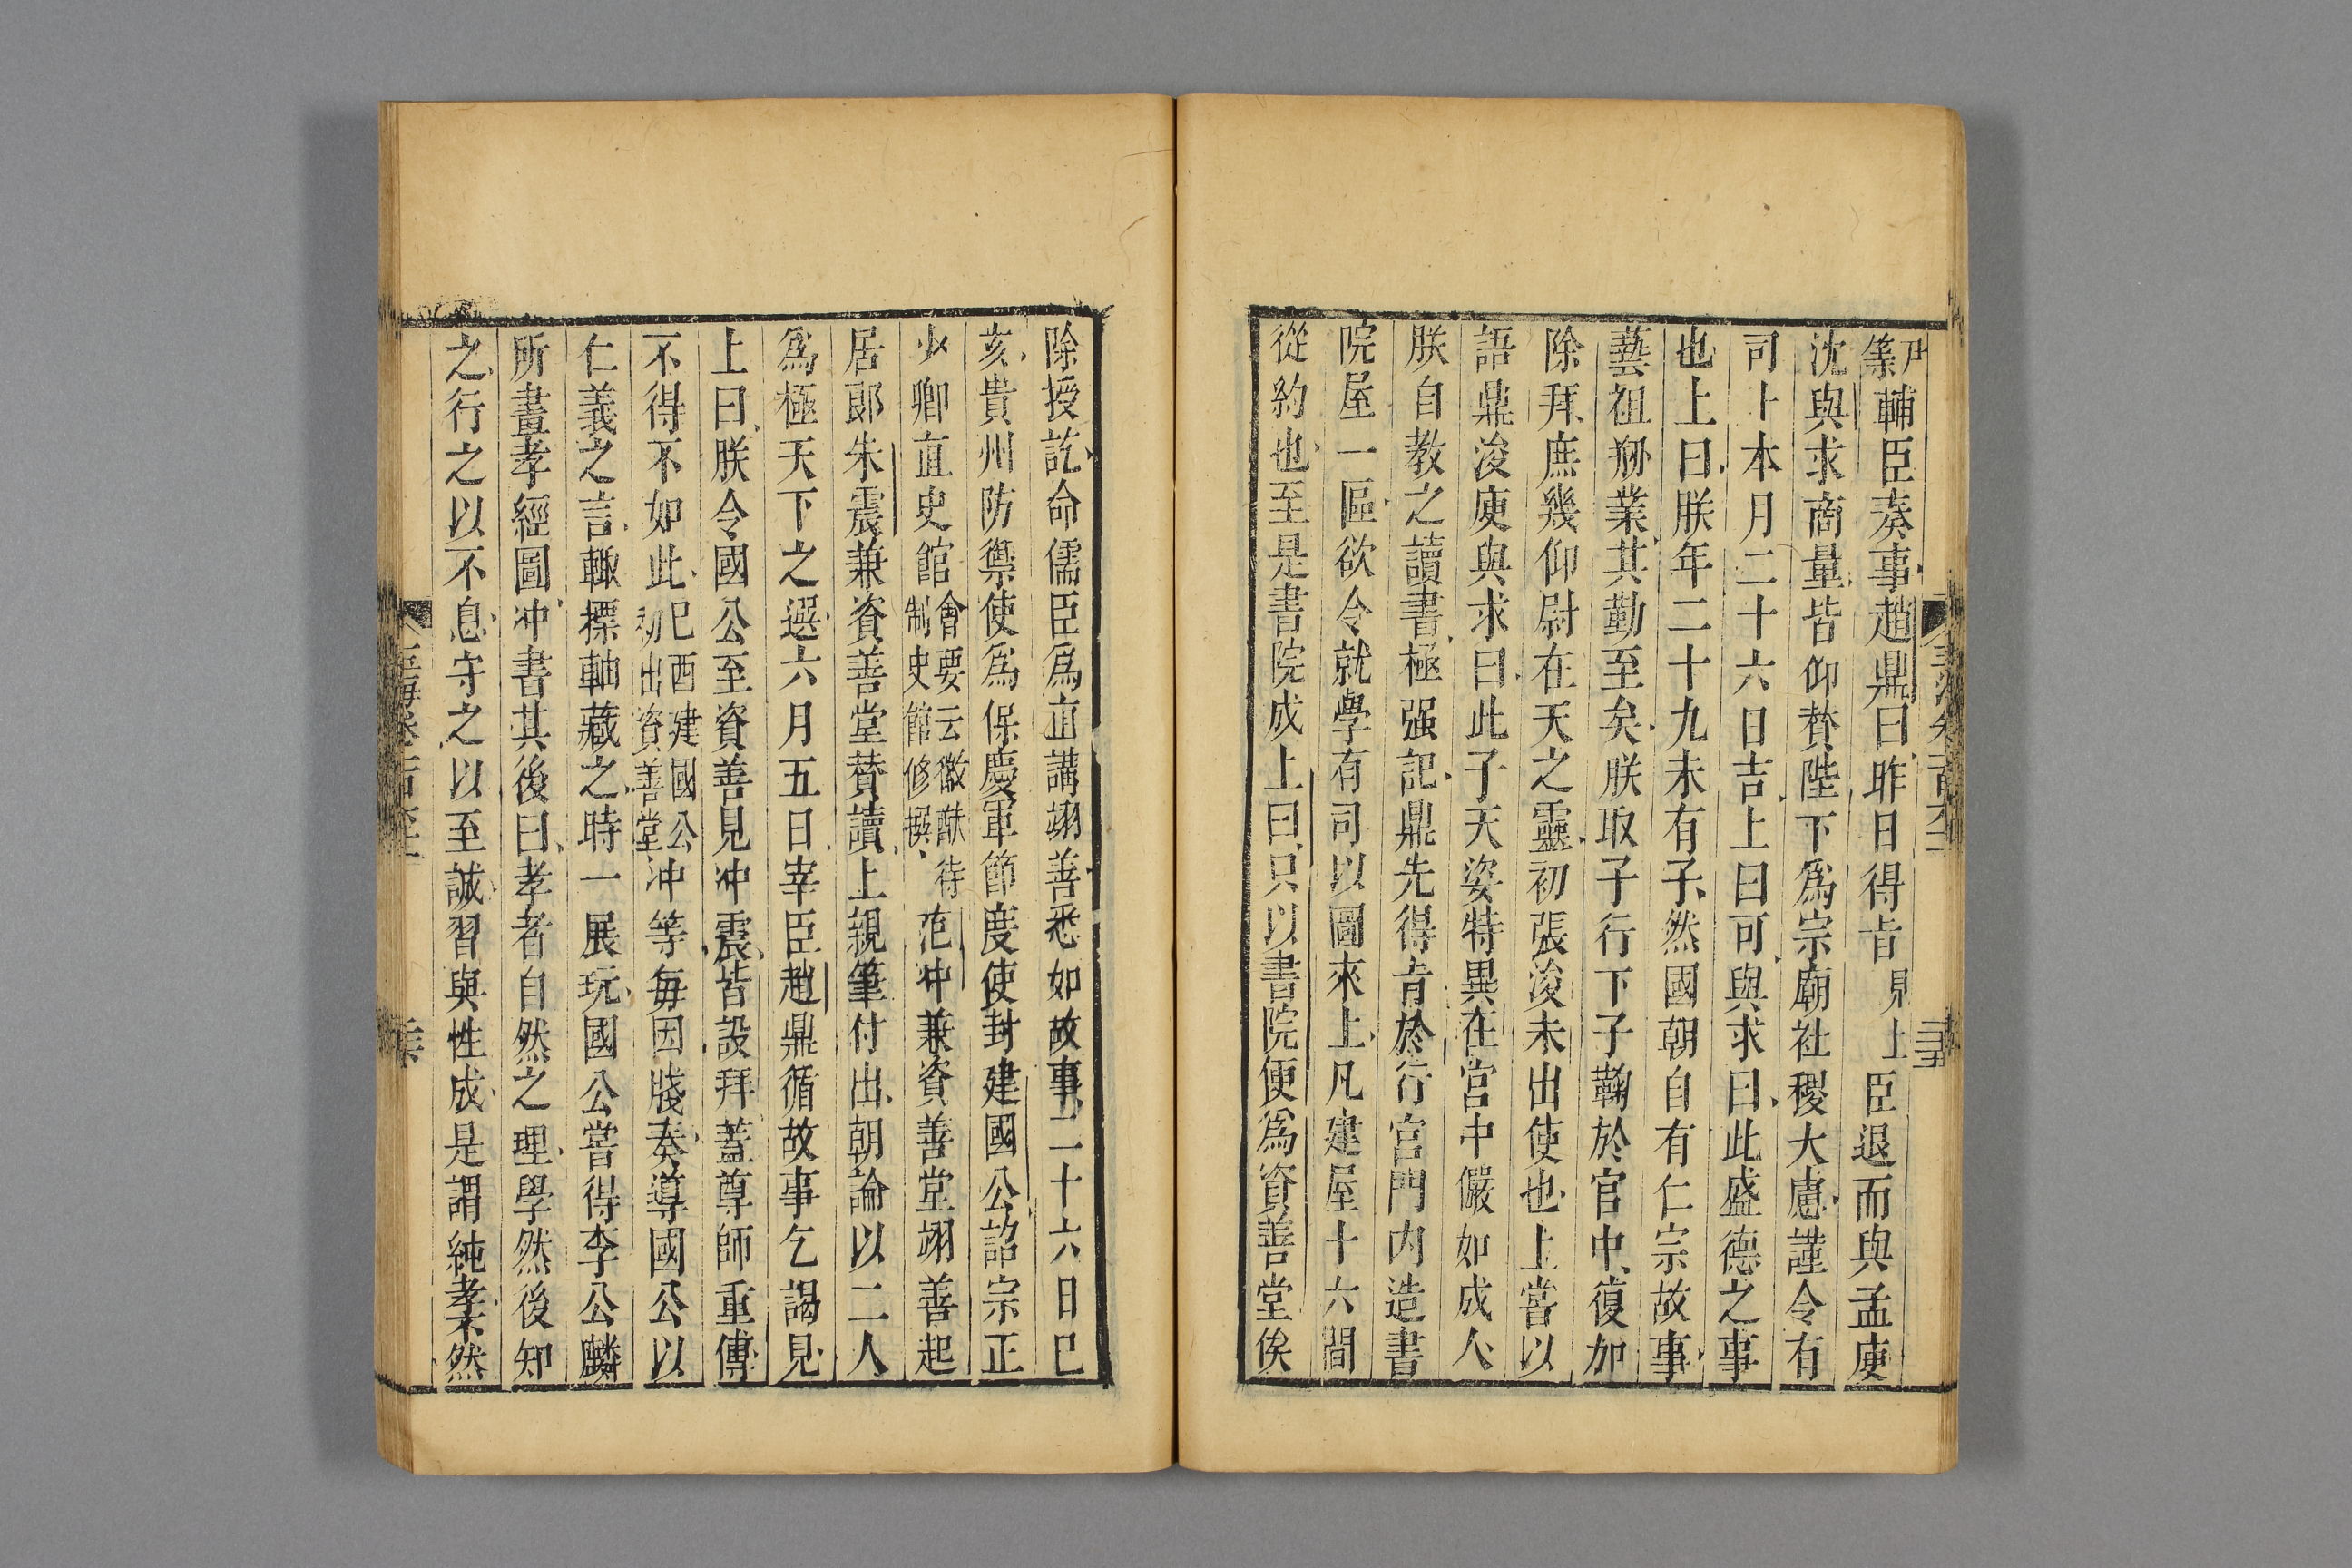 等輔臣奏事趙鼎曰昨日得旨見上臣退而與孟庾
沈與求商量皆仰贊陛下爲宗廟社稷大慮謹令有
司卜本月二十六日吉上曰可與求曰此盛德之事
也上曰朕年二十九未有子然國朝自有仁宗故事
藝祖刱業其勤至矣朕取子行下子鞠於官中復加
除拜庶幾仰尉在天之靈初張浚未出使也上嘗以
語鼎浚庾與求曰此子天姿特異在宮中儼如成人
朕自教之讀書極强記鼎先得旨於行宮門內造書
院屋一區欲令就學有司以圖來上凡建屋十六間
從約也至是書院成上曰只以書院便爲資善堂俟
除授訖命儒臣爲直講翊善悉如故事二十六日己
亥貴州防禦使爲保慶軍節度使封建國公詔宗正
少卿直史館會要云徽猷待制史館修撰范冲兼資善堂翊善起
居郎朱震兼資善堂贊讀上親筆付出朝論以二人
爲極天下之選六月五日宰臣趙鼎循故事乞謁見
上曰朕令國公至資善見冲震皆設拜蓋尊師重傅
不得不如此己酉建國公初出資善堂冲等每因牋奏導國公以
仁義之言輙摽軸藏之時一展玩國公嘗得李公麟
所畫孝經圖冲書其後曰孝者自然之理學然後知
之行之以不息守之以至誠習與性成是謂純孝不然